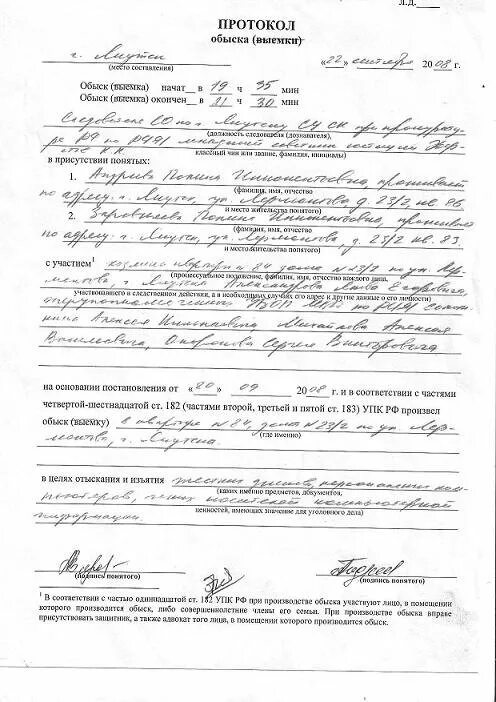 Л.Д.
ПРОТОКОЛ
обыска (выемки)
г. Якутск «22» сентября 2008 г.
(место составления)
Обыск (выемка) начат в 19 ч 35 мин
Обыск (выемка) окончен в 21 ч 30 мин
Следователь СО по г. Якутску СУ СК при прокурату-
(должность следователя (дознавателя),
ре РФ по РС(Я) младший советник юстиции
классный чин или звание, фамилия, инициалы)
в присутствии понятых:
1. Иннокентьевна, проживает
(фамилия, имя, отчество
по адресу: г. Якутск, ул. Лермонтова д. 23/2 кв. 86
и место жительства понятого)
2. Иннокентьевна, проживает
(фамилия, имя, отчество
по адресу: г. Якутск, ул. Лермонтова, д. 23/2 кв. 83.
и место жительства понятого)
с участием¹ хозяина квартиры 84 дома №23/2 по ул. Лер-
(процессуальное положение, фамилия, имя, отчество каждого лица,
монтова, г. Якутска Александрова Егоровича,
участвовавшего в следственном действии, а в необходимых случаях его адрес и другие данные о его личности)
оперуполномоченных МВД по РС(Я)
Алексея Михайлова Алексея
Васильевича, Сергея Викторовича
на основании постановления от «20» 09 2008 г. и в соответствии с частями
четвертой-шестнадцатой ст. 182 (частями второй, третьей и пятой ст. 183) УПК РФ произвел
обыск (выемку) в квартире №84, дома №23/2 по ул. Лер-
(где именно)
монтова, г. Якутска.
в целях отыскания и изъятия жестких дисков, персональных ком-
(каких именно предметов, документов,
пьютеров, иных носителей компьютерной
ценностей, имеющих значение для уголовного дела)
информации.
(подпись понятого) (подпись понятого)
¹ В соответствии с частью одиннадцатой ст. 182 УПК РФ при производстве обыска участвуют лицо, в помещении
которого производится обыск, либо совершеннолетние члены его семьи. При производстве обыска вправе
присутствовать защитник, а также адвокат того лица, в помещении которого производится обыск.